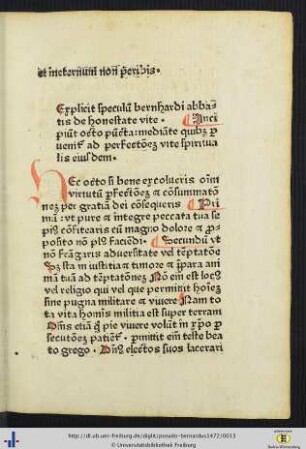 et ineternum non peribis.
Explicit speculū bernhardi abba⸗
tis de honestate vite. Inci
piūt octo pūcta: mediāte quibꝫ ꝑ
uenit᷑ ad perfectōeꝫ vite spiritua
lis eiusdem.
Hec octo si bene excolueris oīm
virtutū ꝑfectōeꝫ ⁊ cōsummatō
neꝫ per gratiā dei cōsequeris Pri
mū: vt pure ⁊ integre peccata tua se
piꝰ cōfitearis cū magno dolore ⁊ ꝓ⸗
posito nō plꝰ faciēdi. Secundū vt
nō frāgaris aduersitate vel tēptatōe
Sꝫ sta in iustitia ⁊ timore ⁊ p̄para ani
mā tuā ad tēptatōneꝫ Nō em̄ est locꝰ
vel religio qui vel que permittit hoīeꝫ
sine pugna militare ⁊ viuere Nam to
ta vita homīs militia est super terram
Dn̄s etiā ꝗ pie viuere volūt in xp̄o ꝑ
secutōneꝫ patient᷑. ꝓmittit em̄ teste bea
to grego. Dn̄s electos suos lacerari
http://dl.ub.uni-freiburg.de/diglit/pseudo-bernardus1472/0013
© Universitätsbibliothek Freiburg